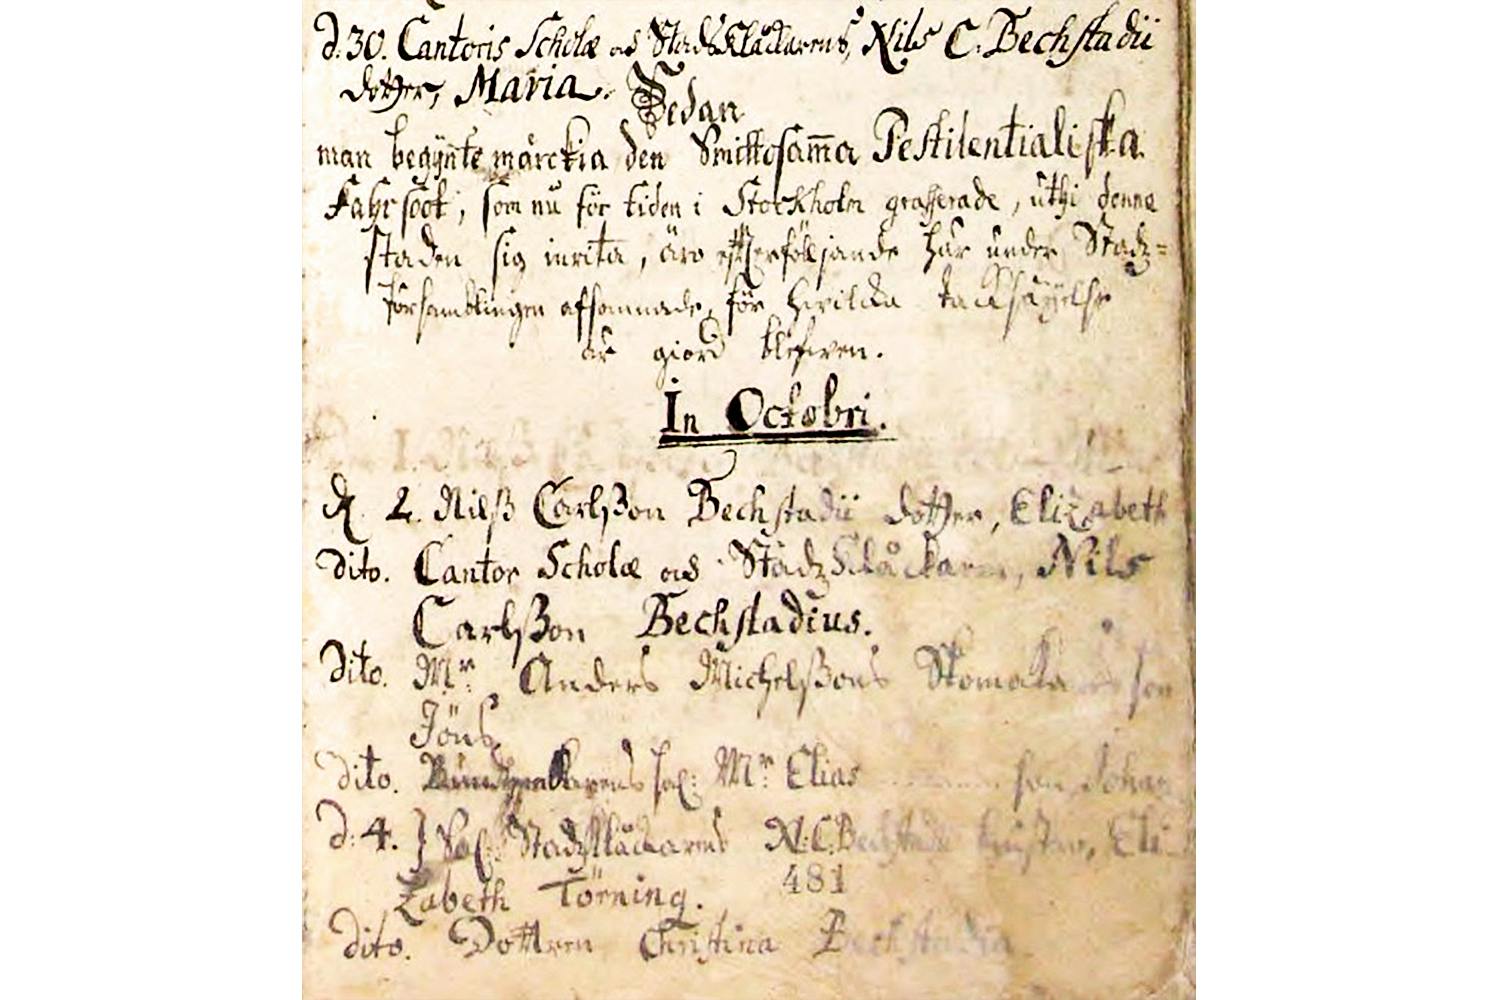 d. 30. Cantoris Scholæ ac StadsKlåckarens, Nils C. Bechstadii
dotter, Maria. Sedan
man begÿnte märckia den Smittosam̅a Pestilentialiska
Fahrsoot, som nu för tiden i Stockholm grasserade, uthi denne
staden sig inrita, äro efterföljande här under Stadz=
församblingen afsomnade, för hvilka tacksäÿelse
är giord blefwen.
In Octobri.
d. 2. Nilß Carlßon Bechstadii dotter, Elizabeth
dito. Cantor Scholæ ac StadzKlåckaren, Nils
Carlßon Bechstadius.
dito. Mr. Anders Michelßons Skomakarens son
Jöns
dito. sal: Mr Elias son Johan
d. 4. Sal: Stadzklåckarens N. C. Bechstadii hustru, Eli-
zabeth Törning. 481
dito. Dottren Christina Bechstadia